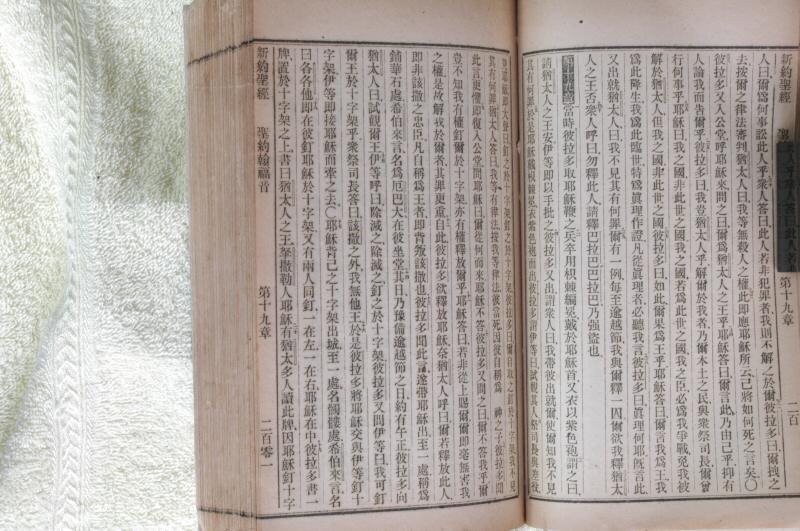 新約聖經
二百
人曰爾爲何事訟此人乎衆人答曰此人若非犯罪者我則不解之於爾彼拉多曰爾拽之
去按爾之律法審判猶太人曰我等無殺人之權此即應耶穌所云己將如何死之言矣○
彼拉多又入公堂呼耶穌來問之曰爾爲猶太人之王乎耶穌答曰爾言此乃由己乎抑有
人論我而告爾乎彼拉多曰我豈猶太人乎解爾於我者乃爾本土之民與衆祭司長爾曾
行何事乎耶穌曰我之國非此世之國我之國若爲此世之國我之臣必爲我爭戰免我被
解於猶太人但我之國非此世之國彼拉多曰如此爾果爲王乎耶穌答曰爾言我爲王我
爲此降生我爲此臨世特爲眞理作證凡從眞理者必聽我言彼拉多曰眞理何耶旣言此
又出就猶太人曰我不見其有何罪爾有一例每至逾越節我與爾釋一囚爾欲我釋猶太
人之王否衆人呼曰勿釋此人請釋巴拉巴巴拉巴乃強盜也
當時彼拉多取耶穌鞭之兵卒用枳棘編冕戴於耶穌首又衣以紫色袍謂之曰
請猶太人之王安伊等即以手批之彼拉多又出謂衆人曰我帶彼出就爾使爾知我不見
其有何罪於是耶穌戴棘冕衣紫色袍出彼拉多謂伊等曰試觀其人祭司長與差役
釘之於十字架彼拉多曰爾自取之釘於十字架我不見
其有何罪猶太人答曰我等有律法按我等律法彼當死因彼自稱爲神之子彼拉多聞
此言更懼即復入公堂問耶穌曰爾從何而來耶穌不答彼拉多又問之曰爾不答我乎爾
豈不知我有權釘爾於十字架亦有權釋放爾乎耶穌答曰若非從上賜爾爾即毫無害我
之權是故解我於爾者其罪更重自此彼拉多欲釋放耶穌奈猶太人呼曰爾若釋放此人
即非該撒之忠臣凡自稱爲王者即背叛該撒也彼拉多聞此言遂帶耶穌出至一處稱爲
鋪華石處希伯來言名爲厄巴大在彼坐堂其日乃豫備逾越節之日約有午正彼拉多向
猶太人曰試觀爾王伊等呼曰除滅之除滅之釘之於十字架彼拉多又問伊等曰我可釘
爾王於十字架乎衆祭司長答曰該撒之外我無他王於是彼拉多將耶穌交與伊等釘十
字架伊等即接耶穌而牽之去○耶穌背己之十字架出城至一處名髑髏處希伯來言名
曰各各他即在彼釘耶穌於十字架又有兩人同釘一在左一在右耶穌在中彼拉多書一
牌置於十字架之上書曰猶太人之王拏撒勒人耶穌有猶太多人讀此牌因耶穌釘十字
新約聖經 聖約翰福音 第十九章 二百零一